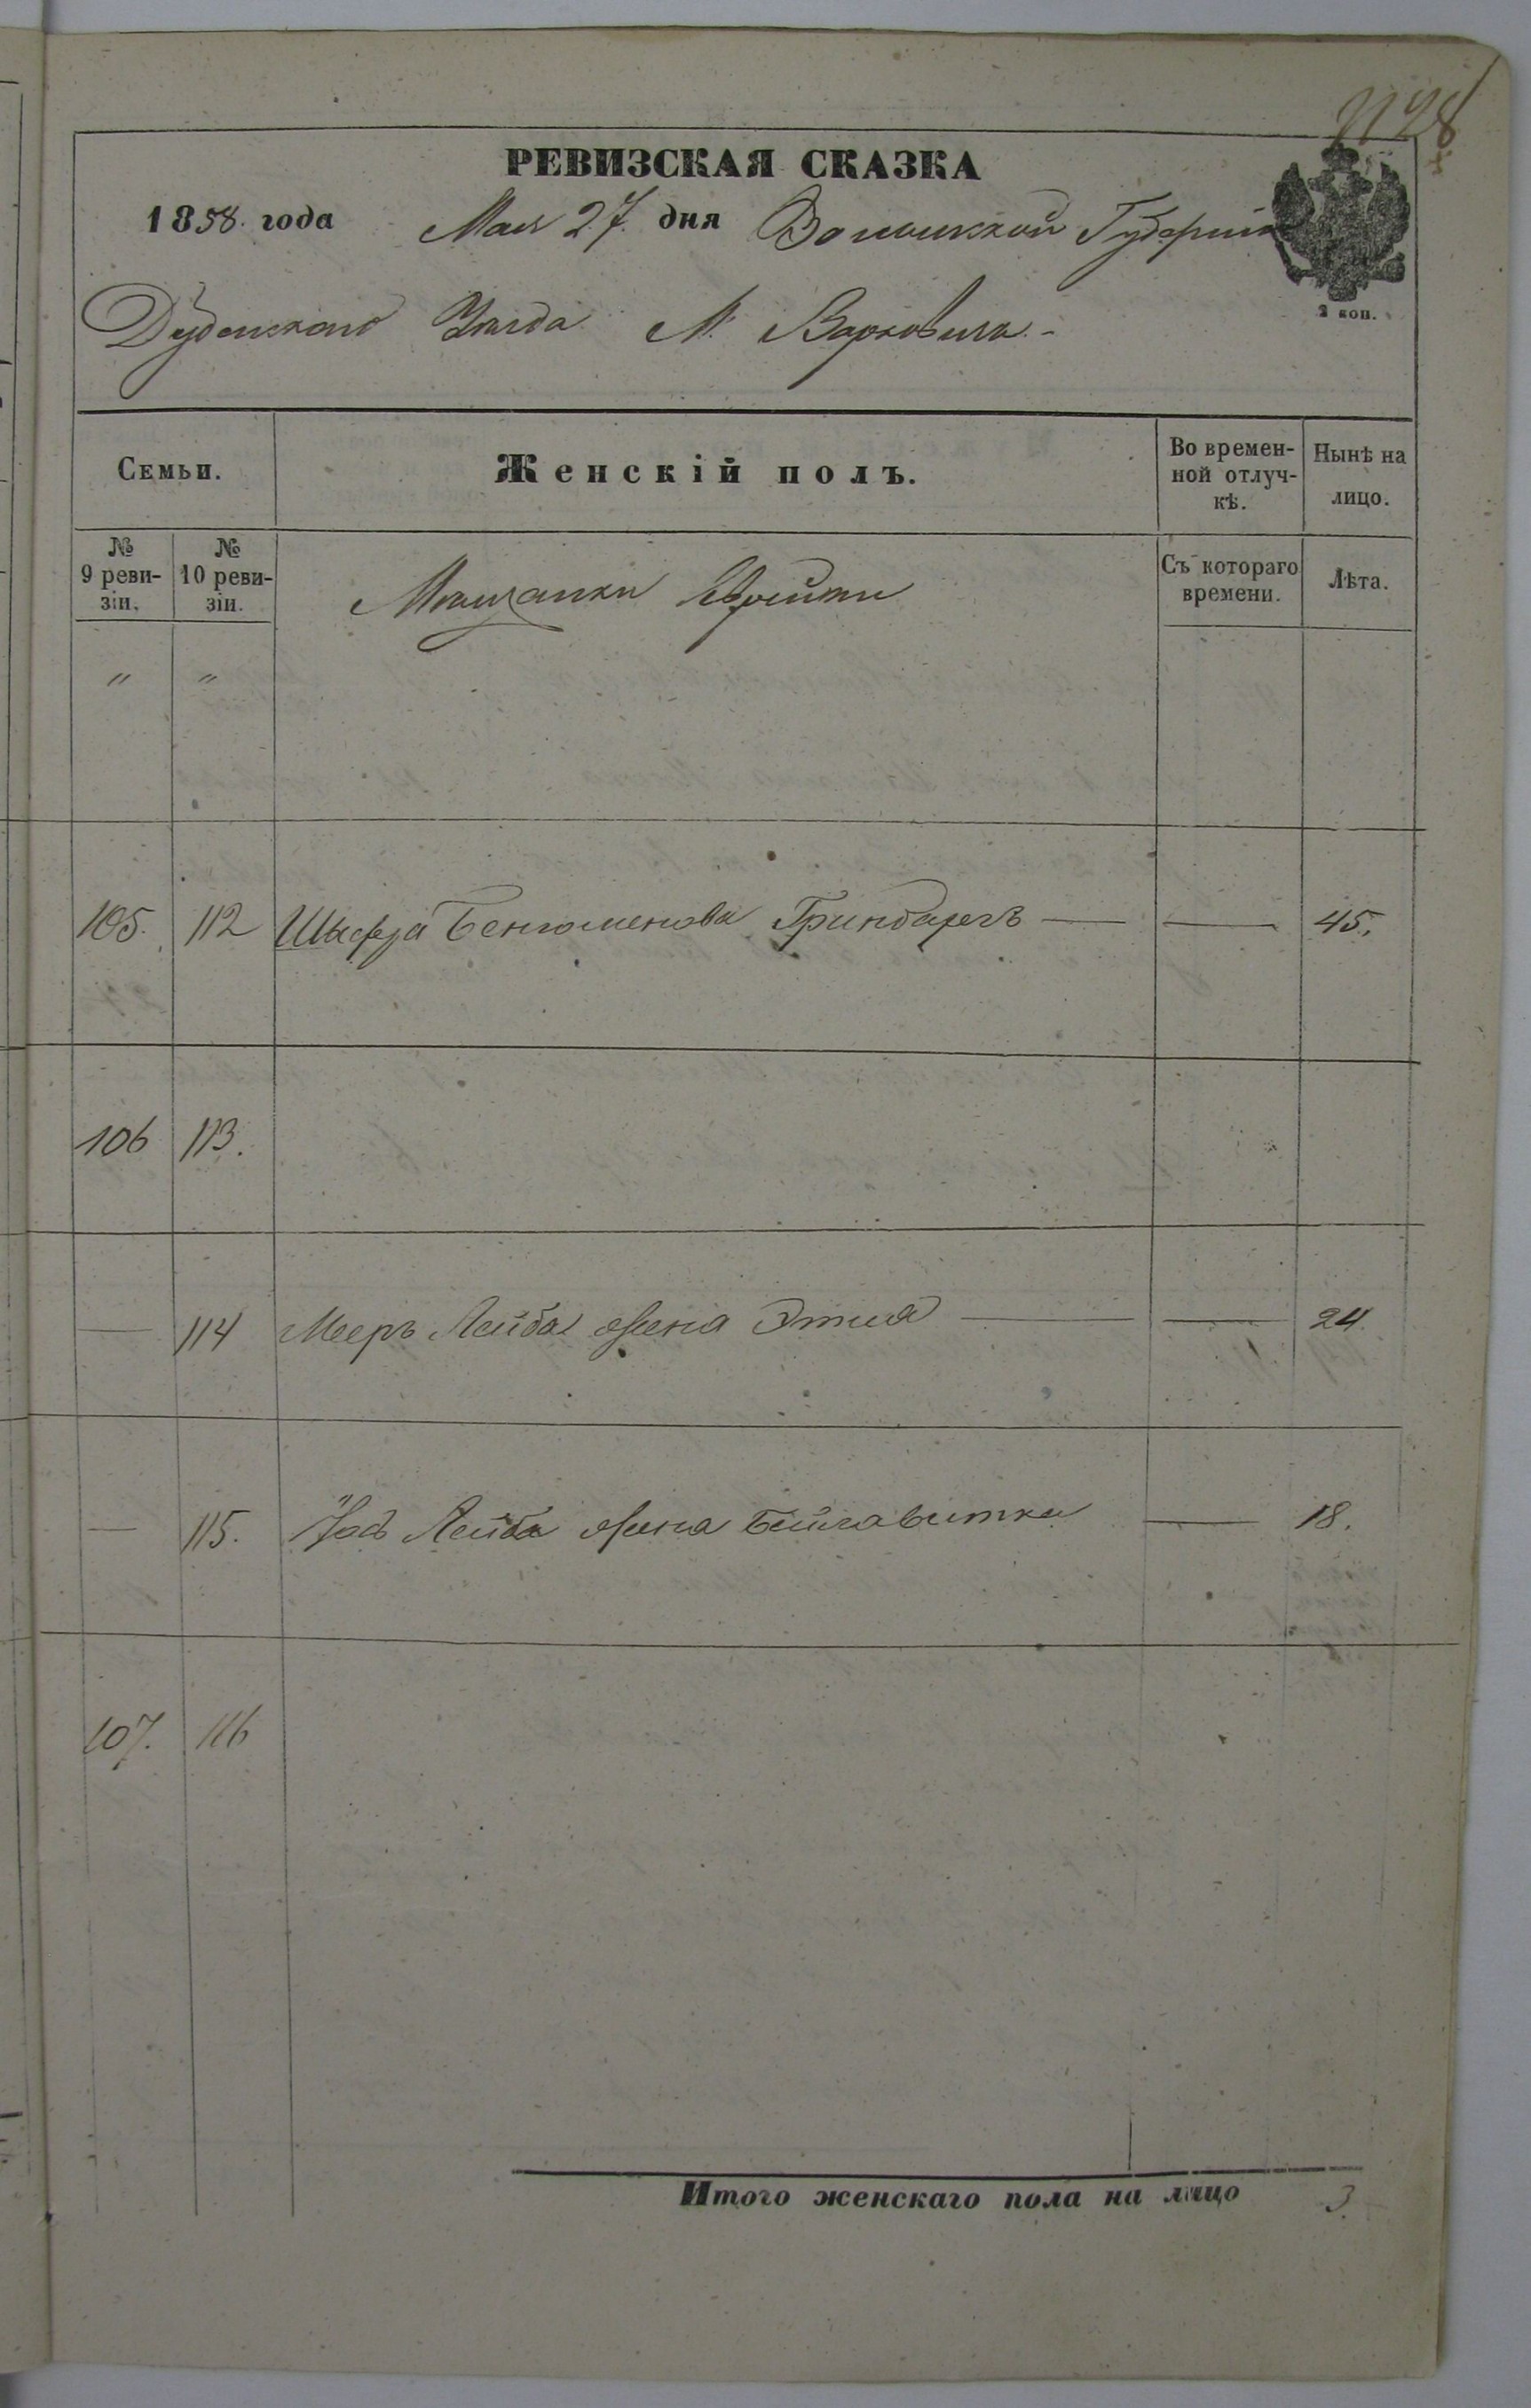 1128
РЕВИЗСКАЯ СКАЗКА
1858. года Мая 27. дня Волынской Губерніи
2 коп.
Дубенскаго Уѣзда М. Варковичь.-
Семьи.
Женскій полъ.
Во времен-
ной отлуч-
кѣ.
Нынѣ на
лицо.
№
9 реви-
зіи.
№
10 реви-
зіи.
Мѣщанки Еврейки
Съ котораго
времени.
Лѣта.
" "
105. 112 Шифра Бенюменова Гринберегъ — — 45.
106 113.
— 114 Мееръ Лейба жена Этля — — 24.
— 115. Лейба жена — 18.
107. 116
Итого женскаго пола на лицо 3.